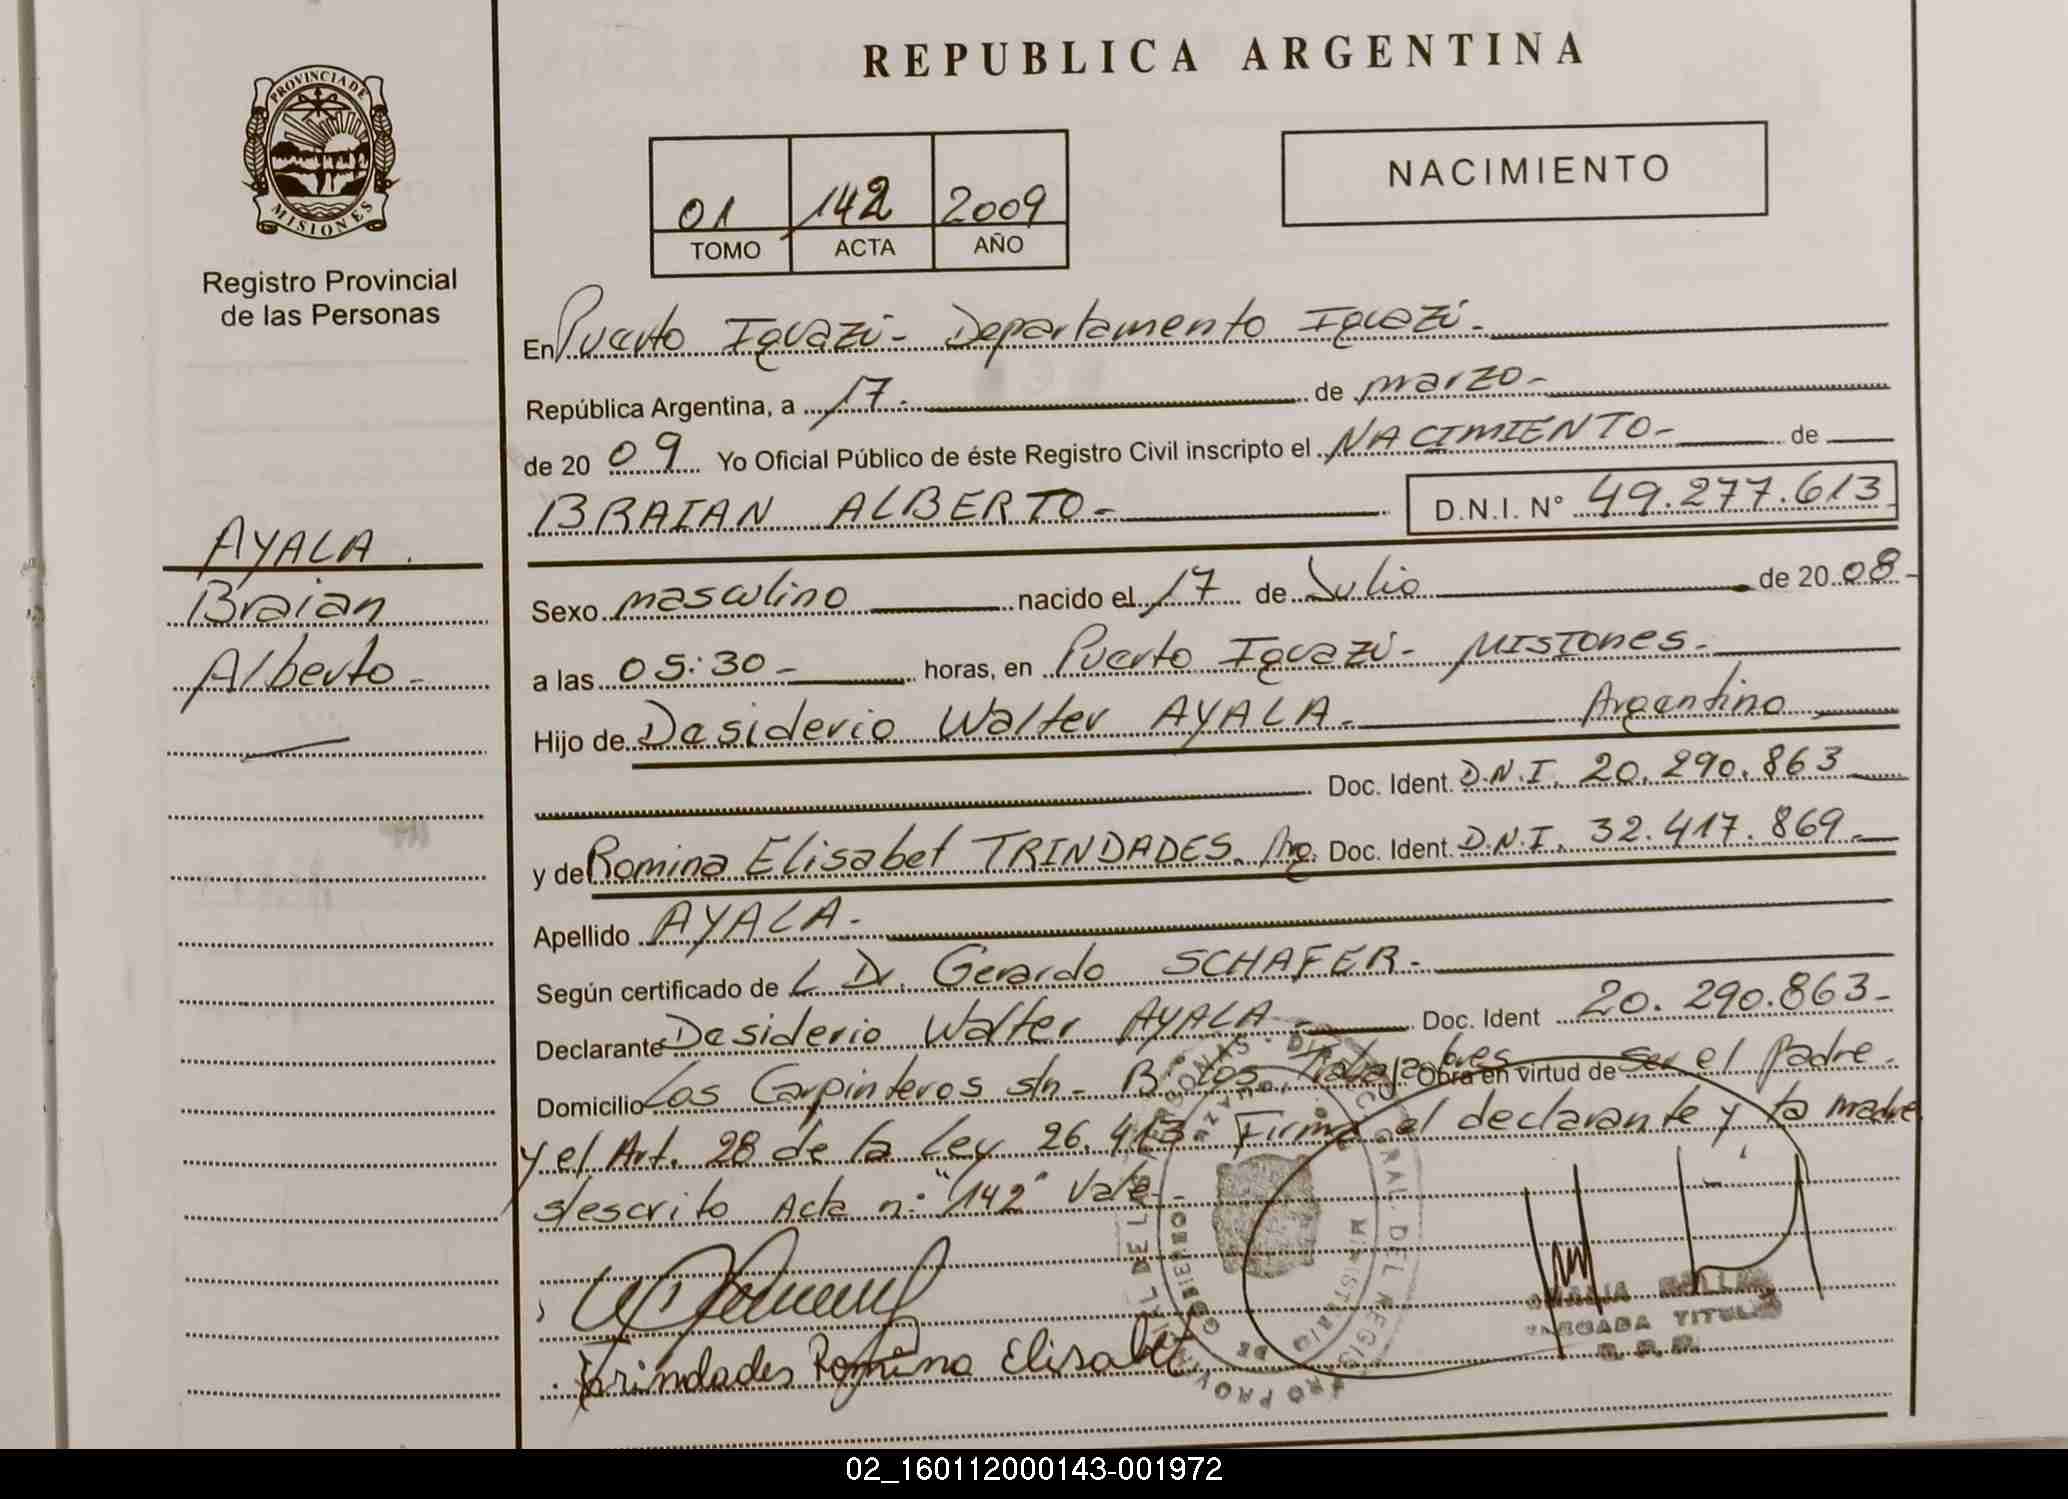 PROVINCIA DE
MISIONES
Registro Provincial
de las Personas
AYALA.
Braian
Alberto-
REPUBLICA ARGENTINA
01 142 2009
TOMO ACTA AÑO
NACIMIENTO
En Puerto Iguazú- Departamento Iguazú-
República Argentina, a 17- de marzo-
de 20 09 Yo Oficial Público de éste Registro Civil inscripto el NACIMIENTO- de
BRAIAN ALBERTO- D.N.I. N° 49.277.613
Sexo masculino nacido el 17 de Julio de 2008-
a las 05:30- horas, en Puerto Iguazú- MISIONES-
Hijo de Desiderio Walter AYALA- Argentino
Doc. Ident. D.N.I. 20.290.863
y de Romina Elisabet TRINDADES. Arg. Doc. Ident. D.N.I. 32.417.869-
Apellido AYALA-
Según certificado de L Dr. Gerardo SCHAFER-
Declarante Desiderio Walter AYALA- Doc. Ident 20.290.863-
Domicilio Los Carpinteros s/n- B° Los Trabajadores Obra en virtud de ser el padre-
y el Art. 28 de la Ley 26.413- Firma el declarante y la madre
s/escrito Acta n° "142" Vale-
Trindades Romina Elisabet
TITULAR
02_160112000143-001972